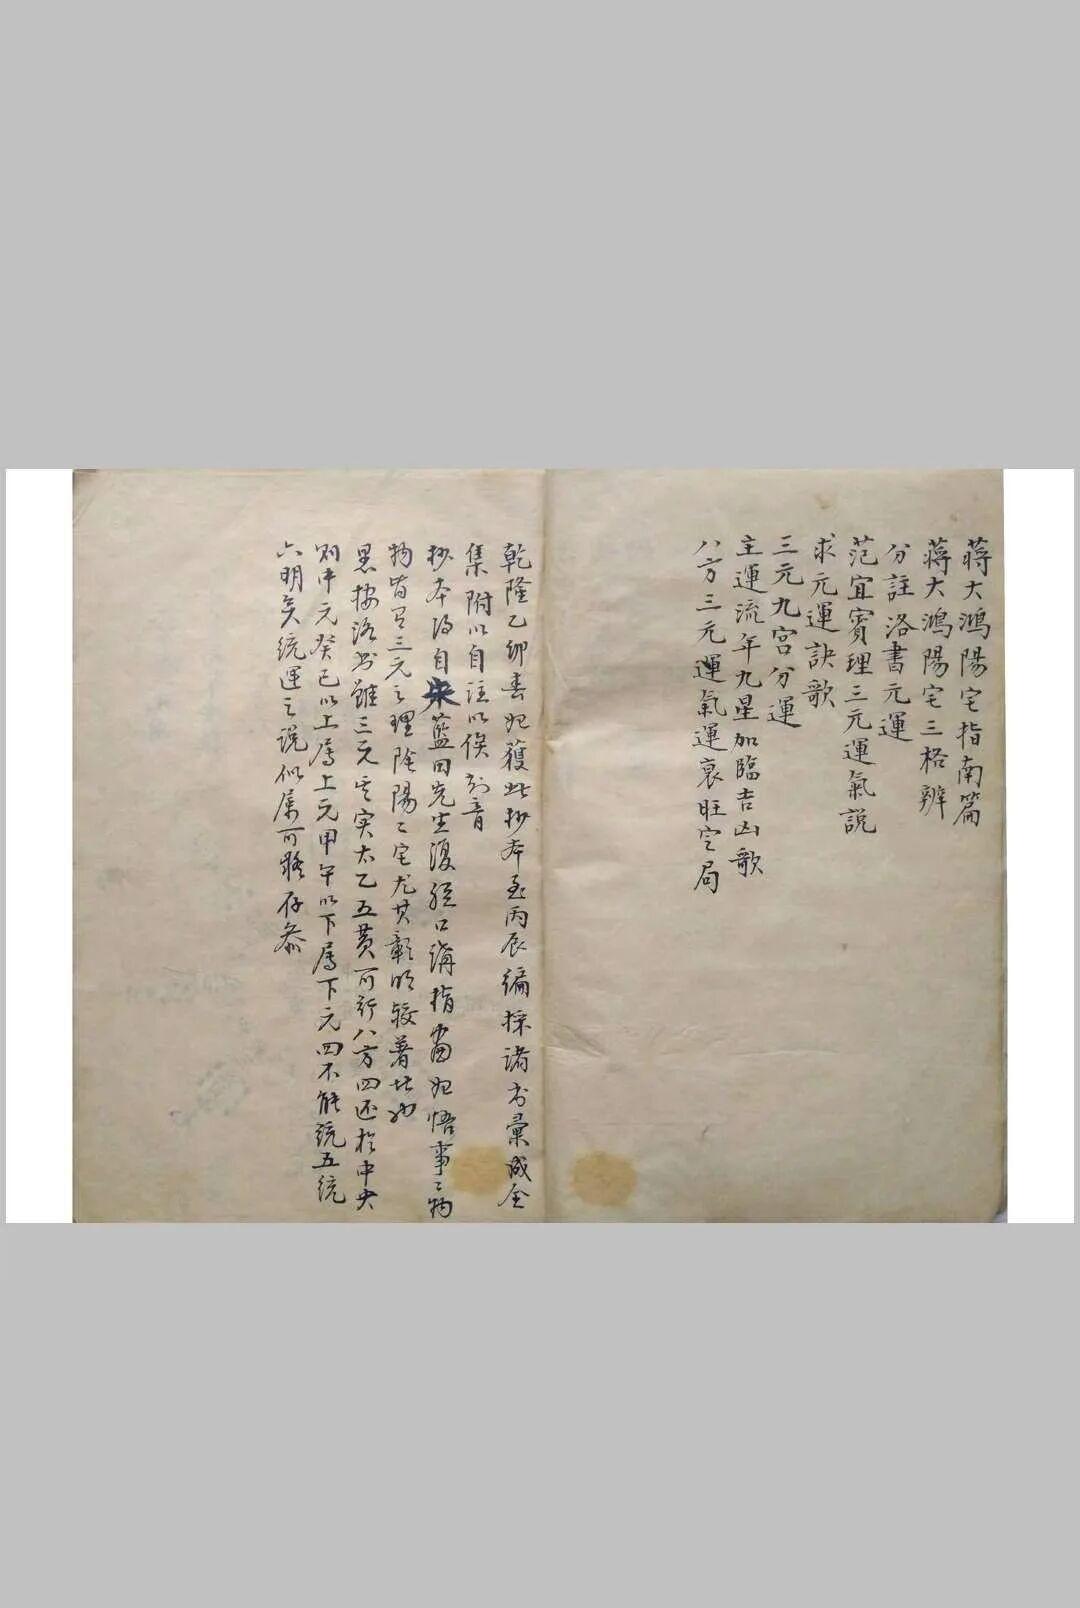 蔣大鴻陽宅指南篇
蔣大鴻陽宅三格辨
分註洛書元運
范宜賓理三元運氣說
求元運訣歌
三元九宮分運
主運流年九星加臨吉凶歌
八方三元運氣運衰旺定局
乾隆乙卯春始獲此抄本至丙辰編採諸书彙成全
集附以自注以俟知音
抄本得自朱藍田先生復經口講指畫始悟事〻物
物皆有三元之理陰陽二宅尤其彰明較著者也
愚按洛书雖三元其实太乙五黄可行八方四还於中央
則中元癸巳以上属上元甲午以下属下元四不能統五統
六明矣統運之說似属可疑存參